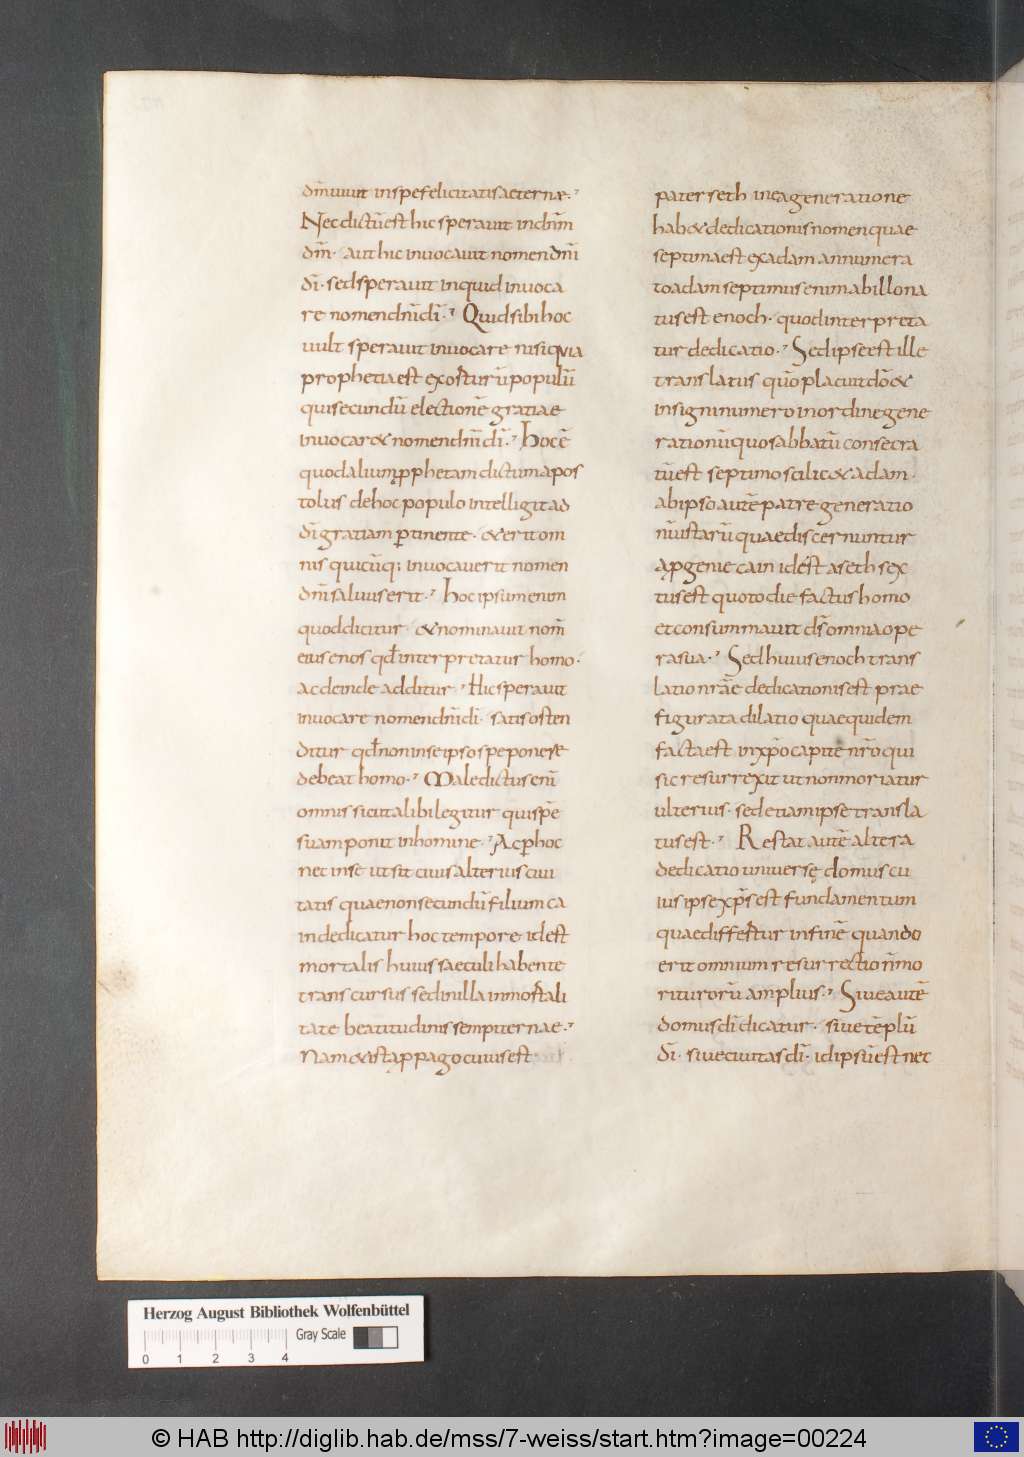 dm̅ uiuit in spe felicitatis aeternæ.
Nec dictū est hic sperauit in dn̅m
dm̅· aut hic inuocauit nomen dn̅i
dī· sed sperauit inquid inuoca
re nomen dn̅i dī· Quid sibi hoc
uult sperauit inuocare nisi quia
prophetia est exorturū populū
qui secundū electionē gratiae
inuocar& nomen dn̅i dī· Hoc ē
quod alium ꝓphetam dictum apos
tolus de hoc populo intelligit ad
dī gratiam ꝑtinente· & erit om
nis quicūq; inuocauerit nomen
dn̅i saluus erit· Hoc ipsum enim
quod dicitur & nominauit nom̅
eius enos qđ interpretatur homo·
ac deinde additur· Hic sperauit
inuocare nomen dn̅i dī· satis osten
ditur qđ non in se ipso spe ponere
debeat homo· Maledictus eni̅
omnis sicut alibi legitur qui spē
suam ponit in homine· Ac ꝑ hoc
nec in se ut sit ciuis alterius ciui
tatis quae non secundū filium ca
in dedicatur hoc tempore id est
mortalis huius saeculi habente
transcursus sed in illa inmortali
tate beatitudinis sempiternae·
Nam & ista ꝓpago cuius est
pater seth in ea generatione
hab& dedicationis nomen quae
septima est ex adam annumera
to adam septimus enim ab illo na
tus est enoch· quod interpreta
tur dedicatio· Sed ipse est ille
translatus quō placuit dō &
insigni numero in ordine gene
rationū quo sabbatū consecra
tū est septimo scilic& adam·
ab ipso autē patre generatio
nū istarū quae discernuntur
a ꝓgenie cain id est a seth sex
tus est quoto die factus homo
et consummauit ds̅ omnia ope
ra sua· Sed huius enoch trans
latio nr̅ae dedicationis est prae
figurata dilatio quae quidem
facta est in xp̅o capite nr̅o qui
sic resurrexit ut non moriatur
ulterius· sed etiam ipse transla
tus est· Restat autē altera
dedicatio uniuersę domus cu
ius ipse xp̅s est fundamentum
quae differtur in finē quando
erit omnium resurrectio n̅ mo
riturorū amplius· Siue autē
domus dī dicatur· siue tēplū
dī· siue ciuitas dī· id ipsū est nec
Herzog August Bibliothek Wolfenbüttel
Gray Scale
0 1 2 3 4
© HAB http://diglib.hab.de/mss/7-weiss/start.htm?image=00224